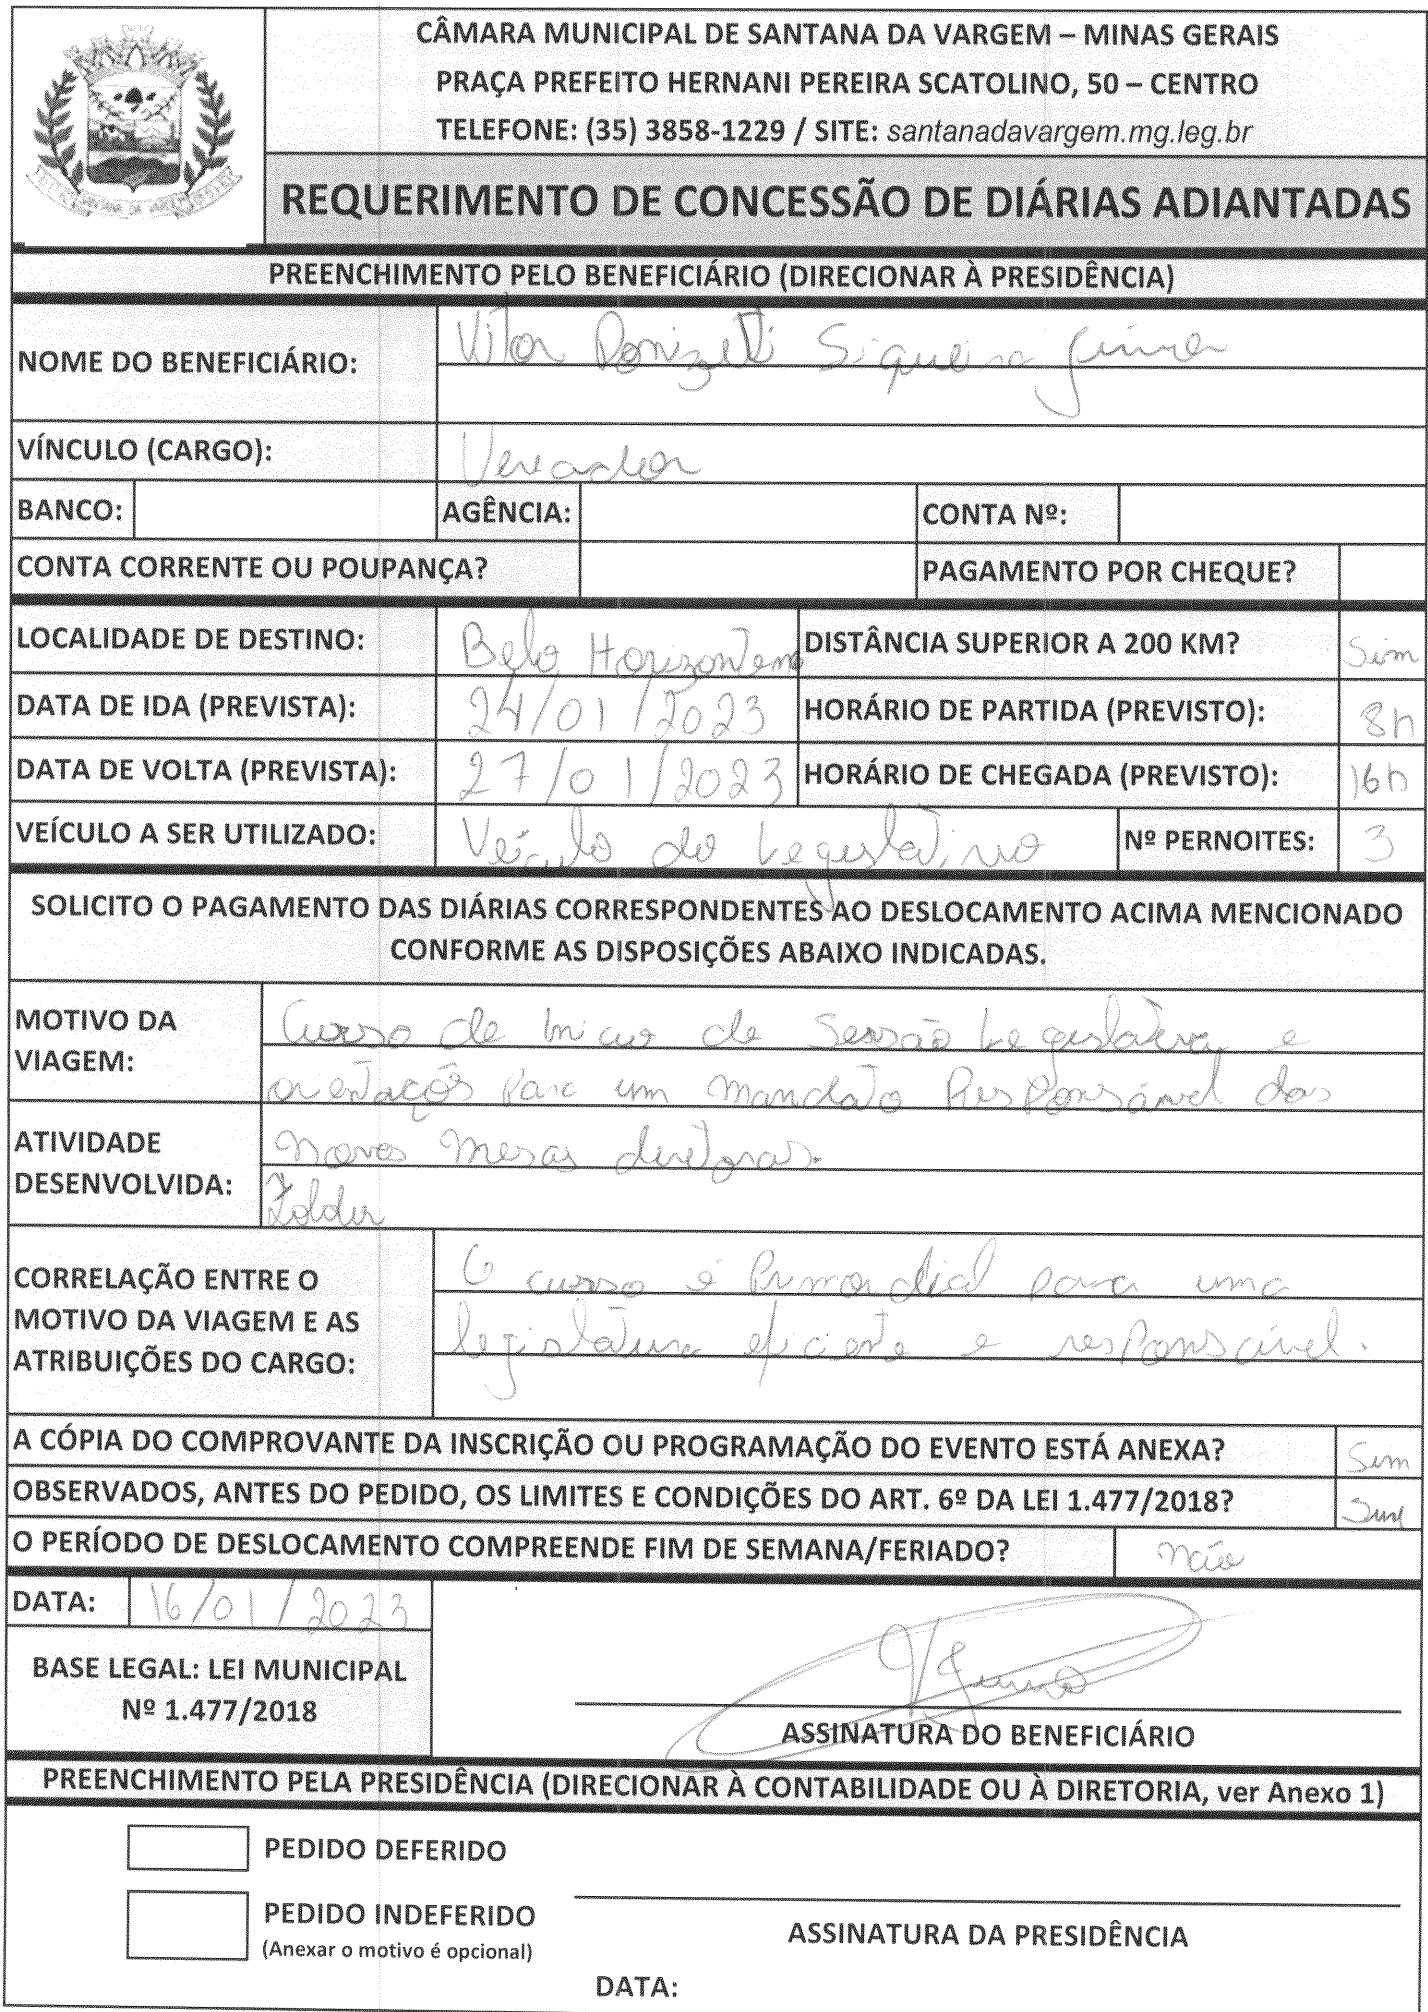 CÂMARA MUNICIPAL DE SANTANA DA VARGEM – MINAS GERAIS
PRAÇA PREFEITO HERNANI PEREIRA SCATOLINO, 50 – CENTRO
TELEFONE: (35) 3858-1229 / SITE: santanadavargem.mg.leg.br
REQUERIMENTO DE CONCESSÃO DE DIÁRIAS ADIANTADAS
PREENCHIMENTO PELO BENEFICIÁRIO (DIRECIONAR À PRESIDÊNCIA)
NOME DO BENEFICIÁRIO: Vitor Donizetti Siqueira Júnior
VÍNCULO (CARGO): Vereador
BANCO: AGÊNCIA: CONTA Nº:
CONTA CORRENTE OU POUPANÇA? PAGAMENTO POR CHEQUE?
LOCALIDADE DE DESTINO: Belo Horizonte DISTÂNCIA SUPERIOR A 200 KM? Sim
DATA DE IDA (PREVISTA): 24/01/2023 HORÁRIO DE PARTIDA (PREVISTO): 8h
DATA DE VOLTA (PREVISTA): 27/01/2023 HORÁRIO DE CHEGADA (PREVISTO): 16h
VEÍCULO A SER UTILIZADO: Veículo do Legislativo Nº PERNOITES: 3
SOLICITO O PAGAMENTO DAS DIÁRIAS CORRESPONDENTES AO DESLOCAMENTO ACIMA MENCIONADO
CONFORME AS DISPOSIÇÕES ABAIXO INDICADAS.
MOTIVO DA VIAGEM: Curso de Inicio de Sessão Legislativa e
orientações Para um mandato Responsável das
ATIVIDADE DESENVOLVIDA: novas mesas diretoras.
Folder
CORRELAÇÃO ENTRE O MOTIVO DA VIAGEM E AS ATRIBUIÇÕES DO CARGO: O curso é Primordial para uma
legislatura eficiente e responsável.
A CÓPIA DO COMPROVANTE DA INSCRIÇÃO OU PROGRAMAÇÃO DO EVENTO ESTÁ ANEXA? Sim
OBSERVADOS, ANTES DO PEDIDO, OS LIMITES E CONDIÇÕES DO ART. 6º DA LEI 1.477/2018? Sim
O PERÍODO DE DESLOCAMENTO COMPREENDE FIM DE SEMANA/FERIADO? não
DATA: 16/01/2023
BASE LEGAL: LEI MUNICIPAL
Nº 1.477/2018
ASSINATURA DO BENEFICIÁRIO
PREENCHIMENTO PELA PRESIDÊNCIA (DIRECIONAR À CONTABILIDADE OU À DIRETORIA, ver Anexo 1)
PEDIDO DEFERIDO
PEDIDO INDEFERIDO
(Anexar o motivo é opcional)
ASSINATURA DA PRESIDÊNCIA
DATA: